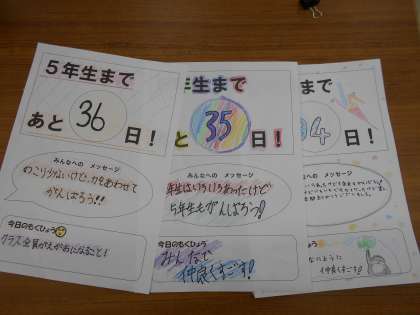 5年生まで
あと 36 日!
みんなへの メッセージ
のこり少ないけど、力をあわせて
がんばろう!!
今日のもくひょう
クラス全員がえがおになること!
年生まで
と 35 日!
みんなへの メッセージ
年生はいろいろあったけど
5年生もがんばろう!
今日のもくひょう
みんなで
仲良くすごす!
生まで
34 日!
への メッセージ
ひょう
なかよく
仲良くすごす!